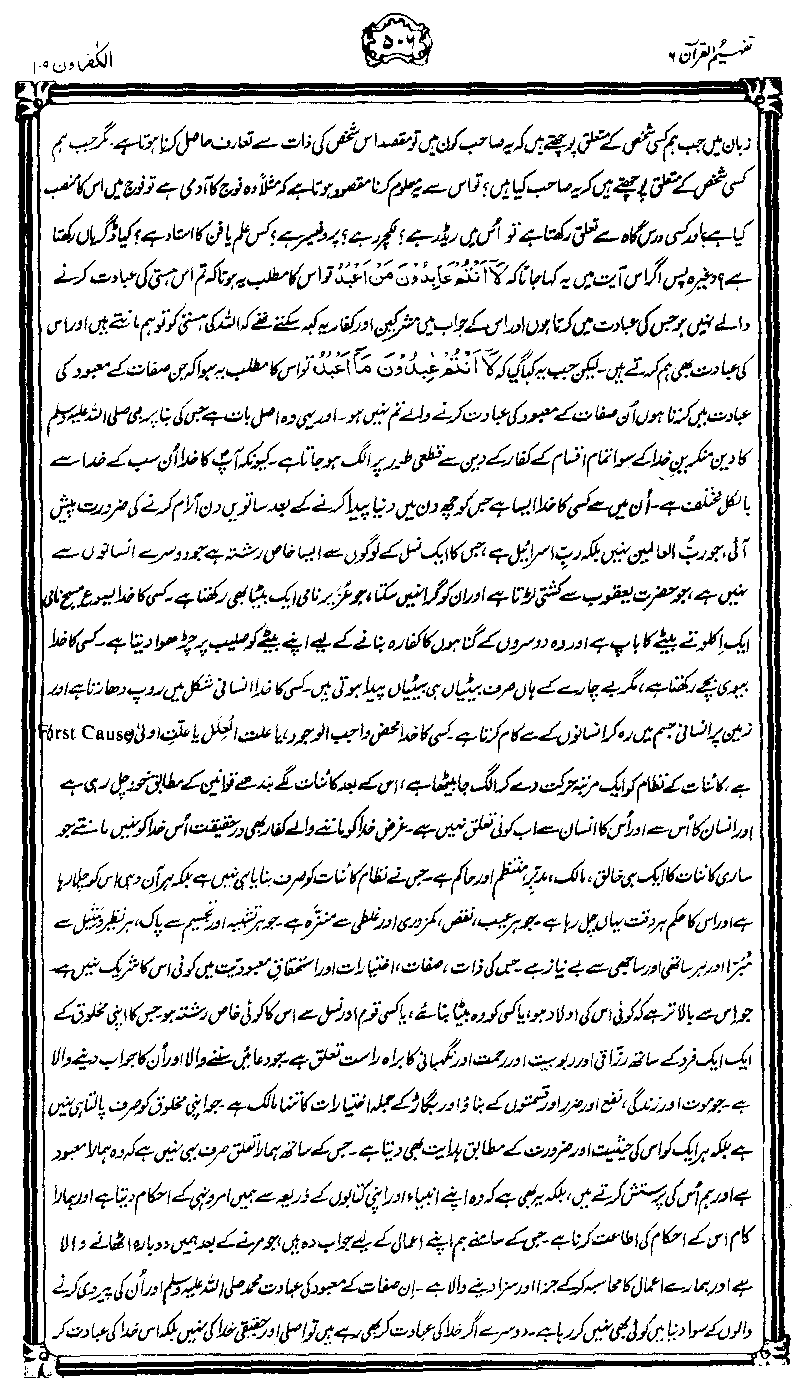 تفہیم القرآن ۶
۵۰۶
الکٰفرون ۱۰۹
زبان میں جب ہم کسی شخص کے متعلق پوچھتے ہیں کہ یہ صاحب کون ہیں تو مقصد اس شخص کی ذات سے تعارف حاصل کرنا ہوتا ہے۔ مگر جب ہم
کسی شخص کے متعلق پوچھتے ہیں کہ یہ صاحب کیا ہیں؟ تو اس سے یہ معلوم کرنا مقصود ہوتا ہے کہ مثلاً وہ فوج کا آدمی ہے تو فوج میں اس کا منصب
کیا ہے؟ اور کسی درس گاہ سے تعلق رکھتا ہے تو اُس میں ریڈر ہے؟ لکچرر ہے؟ پروفیسر ہے؟ کس علم یا فن کا استاد ہے؟ کیا ڈگریاں رکھتا
ہے؟ وغیرہ پس اگر اس آیت میں یہ کہا جاتا کہ لَآ اَنْتُمْ عَابِدُوْنَ مَنْ اَعْبُدُ تو اس کا مطلب یہ ہوتا کہ تم اس ہستی کی عبادت کرنے
والے نہیں ہو جس کی عبادت میں کرتا ہوں اور اس کے جواب میں مشرکین اور کفار یہ کہہ سکتے تھے کہ اللہ کی ہستی کو تو ہم مانتے ہیں اور اس
کی عبادت بھی ہم کرتے ہیں۔ لیکن جب یہ کہا گیا کہ لَآ اَنْتُمْ عٰبِدُوْنَ مَآ اَعْبُدُ تو اس کا مطلب یہ ہوا کہ جن صفات کے معبود کی
عبادت میں کرتا ہوں اُن صفات کے معبود کی عبادت کرنے والے تم نہیں ہو۔ اور یہی وہ اصل بات ہے جس کی بنا پر نبی صلی اللہ علیہ وسلم
کا دین منکرینِ خدا کے سوا تمام اقسام کے کفار کے دین سے قطعی طور پر الگ ہو جاتا ہے۔ کیونکہ آپ کا خدا اُن سب کے خدا سے
بالکل مختلف ہے۔ اُن میں سے کسی کا خدا ایسا ہے جس کو چھ دن میں دنیا پیدا کرنے کے بعد ساتویں دن آرام کرنے کی ضرورت پیش
آئی، جو ربُّ العالمین نہیں بلکہ ربِّ اسرائیل ہے، جس کا ایک نسل کے لوگوں سے ایسا خاص رشتہ ہے جو دوسرے انسانوں سے
نہیں ہے، جو حضرت یعقوب سے کشتی لڑتا ہے اور ان کو گرا نہیں سکتا، جو عُزیر نامی ایک بیٹا بھی رکھتا ہے۔ کسی کا خدا یسوع مسیح نامی
ایک اکلوتے بیٹے کا باپ ہے اور وہ دوسروں کے گناہوں کا کفارہ بنانے کے لیے اپنے بیٹے کو صلیب پر چڑھوا دیتا ہے۔ کسی کا خدا
بیوی بچے رکھتا ہے، مگر بے چارے کے ہاں صرف بیٹیاں ہی بیٹیاں پیدا ہوتی ہیں۔ کسی کا خدا انسانی شکل میں روپ دھارتا ہے اور
زمین پر انسانی جسم میں رہ کر انسانوں کے سے کام کرتا ہے۔ کسی کا خدا محض واجب الوجود، یا علت العلل یا علتِ اولیٰ (First Cause)
ہے، کائنات کے نظام کو ایک مرتبہ حرکت دے کر الگ جا بیٹھا ہے، اس کے بعد کائنات لگے بندھے قوانین کے مطابق خود چل رہی ہے
اور انسان کا اُس سے اور اُس کا انسان سے اب کوئی تعلق نہیں ہے۔ غرض خدا کو ماننے والے کفار بھی درحقیقت اُس خدا کو نہیں مانتے جو
ساری کائنات کا ایک ہی خالق، مالک، مدبّر، منتظم اور حاکم ہے۔ جس نے نظام کائنات کو صرف بنایا ہی نہیں ہے بلکہ ہر آن وہی اس کو چلا رہا
ہے اور اس کا حکم ہر وقت یہاں چل رہا ہے۔ جو ہر عیب، نقص، کمزوری اور غلطی سے منزّہ ہے۔ جو ہر تشبیہ اور تجسیم سے پاک، ہر نظیر و مثیل سے
مُبرّا اور ہر ساتھی اور ساجھی سے بے نیاز ہے۔ جس کی ذات، صفات، اختیارات اور استحقاقِ معبودیت میں کوئی اس کا شریک نہیں ہے۔
جو اس سے بالاتر ہے کہ کوئی اس کی اولاد ہو، یا کسی کو وہ بیٹا بنائے، یا کسی قوم اور نسل سے اس کا کوئی خاص رشتہ ہو۔ جس کا اپنی مخلوق کے
ایک ایک فرد کے ساتھ رزّاقی اور ربوبیت اور رحمت اور نگہبانی کا براہ راست تعلق ہے۔ جو دعائیں سننے والا اور اُن کا جواب دینے والا
ہے۔ جو موت اور زندگی، نفع اور ضرر اور قسمتوں کے بناؤ اور بگاڑ کے جملہ اختیارات کا تنہا مالک ہے۔ جو اپنی مخلوق کو صرف پالتا ہی نہیں
ہے بلکہ ہر ایک کو اس کی حیثیت اور ضرورت کے مطابق ہدایت بھی دیتا ہے۔ جس کے ساتھ ہمارا تعلق صرف یہی نہیں ہے کہ وہ ہمارا معبود
ہے اور ہم اُس کی پرستش کرتے ہیں، بلکہ یہ بھی ہے کہ وہ اپنے انبیاء اور اپنی کتابوں کے ذریعہ سے ہمیں امر و نہی کے احکام دیتا ہے اور ہمارا
کام اس کے احکام کی اطاعت کرنا ہے۔ جس کے سامنے ہم اپنے اعمال کے لیے جواب دہ ہیں، جو مرنے کے بعد ہمیں دوبارہ اٹھانے والا
ہے اور ہمارے اعمال کا محاسبہ کر کے جزا اور سزا دینے والا ہے۔ اِن صفات کے معبود کی عبادت محمد صلی اللہ علیہ وسلم اور اُن کی پیروی کرنے
والوں کے سوا دنیا میں کوئی بھی نہیں کر رہا ہے۔ دوسرے اگر خدا کی عبادت کر بھی رہے ہیں تو اصلی اور حقیقی خدا کی نہیں بلکہ اس خدا کی عبادت کر